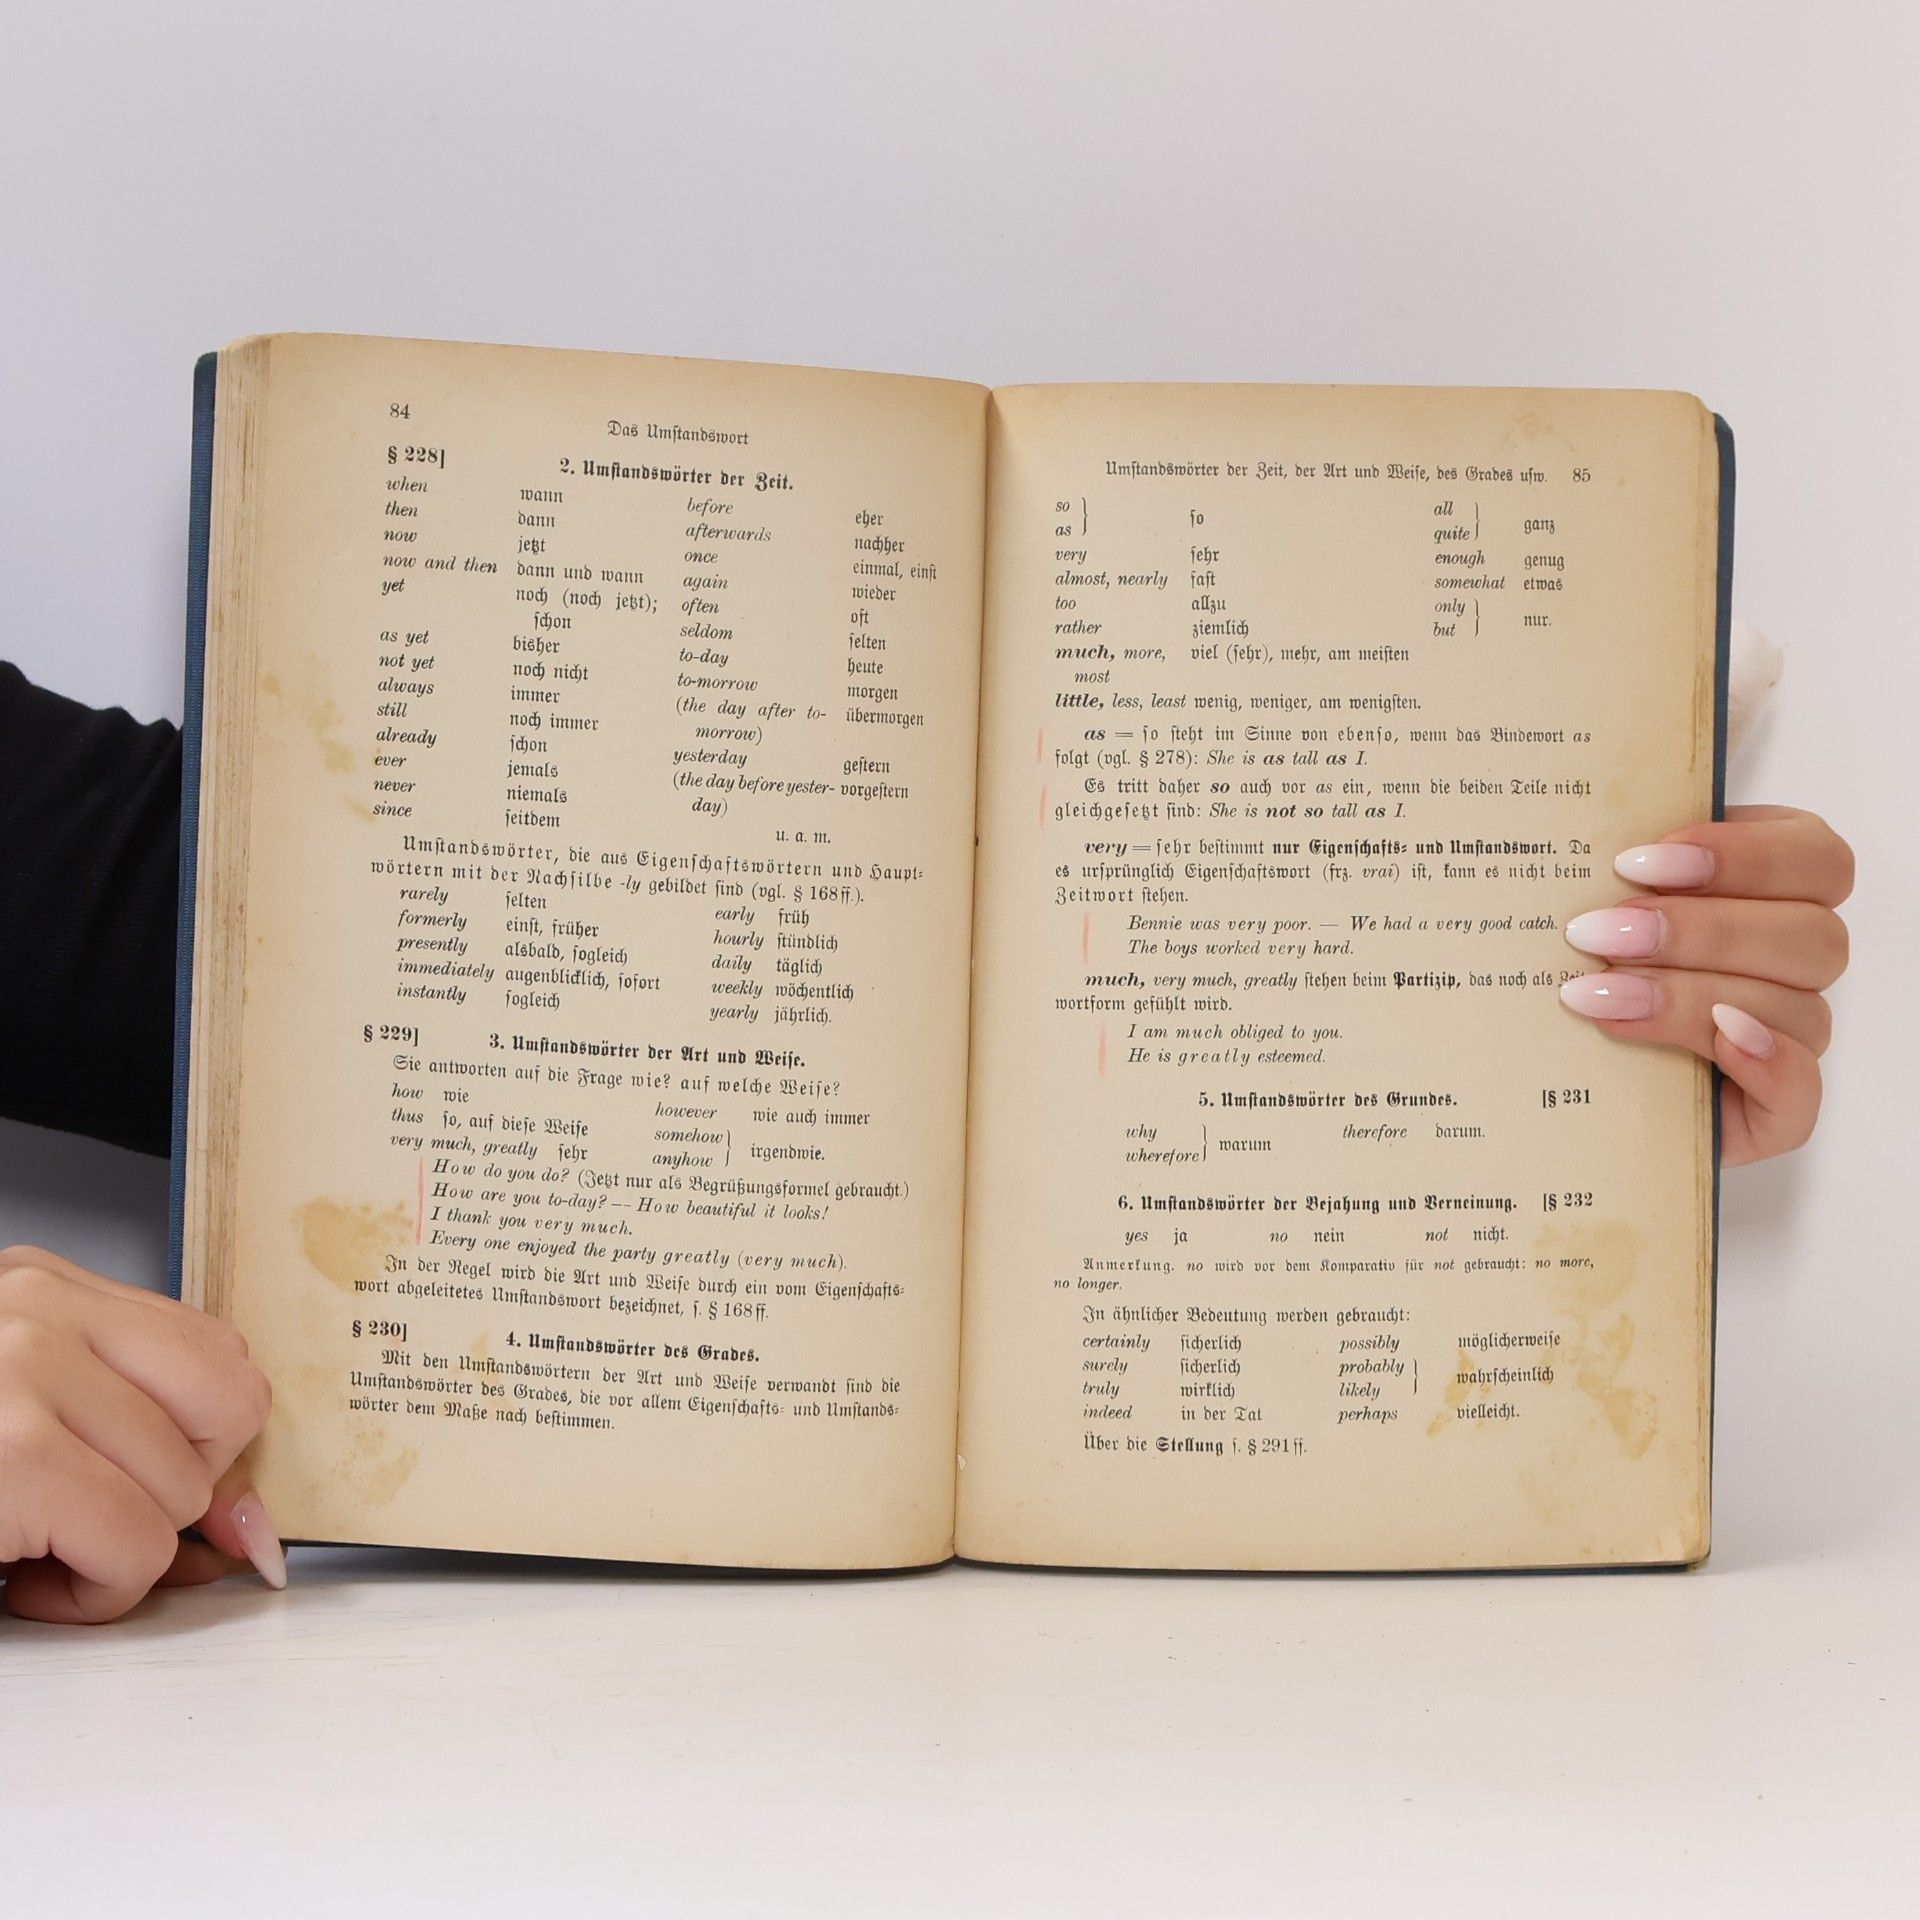 84
Das Umstandswort
§ 228]
2. Umstandswörter der Zeit.
when wann before eher
then dann afterwards nachher
now jetzt once einmal, einst
now and then dann und wann again wieder
yet noch (noch jetzt); often oft
schon seldom selten
as yet bisher to-day heute
not yet noch nicht to-morrow morgen
always immer (the day after to- übermorgen
still noch immer morrow)
already schon yesterday gestern
ever jemals (the day before yester- vorgestern
never niemals day)
since seitdem u. a. m.
Umstandswörter, die aus Eigenschaftswörtern und Haupt-
wörtern mit der Nachsilbe -ly gebildet sind (vgl. § 168 ff.).
rarely selten early früh
formerly einst, früher hourly stündlich
presently alsbald, sogleich daily täglich
immediately augenblicklich, sofort weekly wöchentlich
instantly sogleich yearly jährlich.
§ 229]
3. Umstandswörter der Art und Weise.
Sie antworten auf die Frage wie? auf welche Weise?
how wie however wie auch immer
thus so, auf diese Weise somehow } irgendwie.
very much, greatly sehr anyhow }
How do you do? (Jetzt nur als Begrüßungsformel gebraucht.)
How are you to-day? — How beautiful it looks!
I thank you very much.
Every one enjoyed the party greatly (very much).
In der Regel wird die Art und Weise durch ein vom Eigenschafts-
wort abgeleitetes Umstandswort bezeichnet, s. § 168 ff.
§ 230]
4. Umstandswörter des Grades.
Mit den Umstandswörtern der Art und Weise verwandt sind die
Umstandswörter des Grades, die vor allem Eigenschafts- und Umstands-
wörter dem Maße nach bestimmen.
Umstandswörter der Zeit, der Art und Weise, des Grades usw. 85
so } so all } ganz
as } quite }
very sehr enough genug
almost, nearly fast somewhat etwas
too allzu only } nur.
rather ziemlich but }
much, more, viel (sehr), mehr, am meisten
most
little, less, least wenig, weniger, am wenigsten.
as = so steht im Sinne von ebenso, wenn das Bindewort as
folgt (vgl. § 278): She is as tall as I.
Es tritt daher so auch vor as ein, wenn die beiden Teile nicht
gleichgesetzt sind: She is not so tall as I.
very = sehr bestimmt nur Eigenschafts- und Umstandswort. Da
es ursprünglich Eigenschaftswort (frz. vrai) ist, kann es nicht beim
Zeitwort stehen.
Bennie was very poor. — We had a very good catch.
The boys worked very hard.
much, very much, greatly stehen beim Partizip, das noch als
wortform gefühlt wird.
I am much obliged to you.
He is greatly esteemed.
5. Umstandswörter des Grundes. [§ 231
why } warum therefore darum.
wherefore }
6. Umstandswörter der Bejahung und Verneinung. [§ 232
yes ja no nein not nicht.
Anmerkung. no wird vor dem Komparativ für not gebraucht: no more,
no longer.
In ähnlicher Bedeutung werden gebraucht:
certainly sicherlich possibly möglicherweise
surely sicherlich probably } wahrscheinlich
truly wirklich likely }
indeed in der Tat perhaps vielleicht.
Über die Stellung s. § 291 ff.